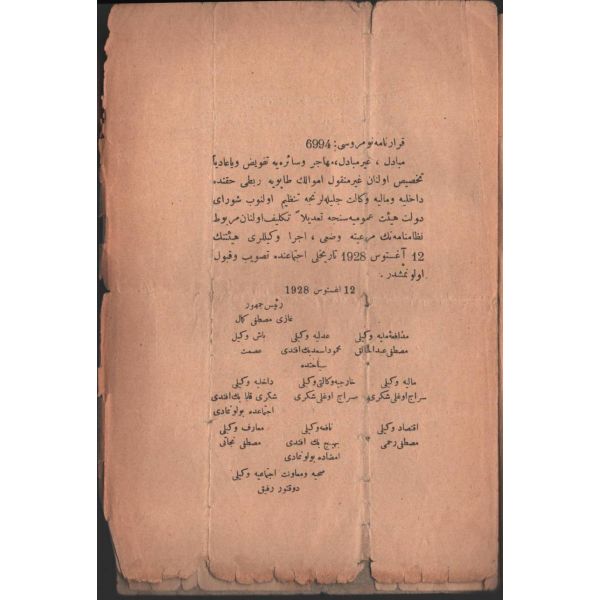 قرارنامه نومروسی: 6994
مبادل ، غیرمبادل، مهاجر وسائره‌یه تفویض ویاعادیاً
تخصیص اولنان غیرمنقول اموالك طاپویه ربطی حقنده
داخلیه ومالیه وكالت جلیله‌لرنجه تنظیم اولنوب شورای
دولت هیئت عمومیه‌سنجه تعدیلاً تكلیف اولنان مربوط
نظامنامه‌نك مرعیته وضعی ، اجرا وكیللری هیئتنك
12 آغستوس 1928 تاریخلی اجتماعنده تصویب وقبول
اولونمشدر .
12 اغستوس 1928
رئیس جمهور
غازی مصطفی كمال
باش وكیل عدلیه وكیلی مدافعهٔ ملیه وكیلی
عصمت محمود اسعد بك افندی مصطفی عبدالخالق
سیاحتده
داخلیه وكیلی خارجیه وكالتی وكیلی مالیه وكیلی
شكری قایا بك افندی سراج اوغلی شكری سراج اوغلی شكری
اجتماعده بولونمادی
معارف وكیلی نافعه وكیلی اقتصاد وكیلی
مصطفی نجاتی بهیج بك افندی مصطفی رحمی
امضاده بولونمادی
صحیه ومعاونت اجتماعیه وكیلی
دوقتور رفیق